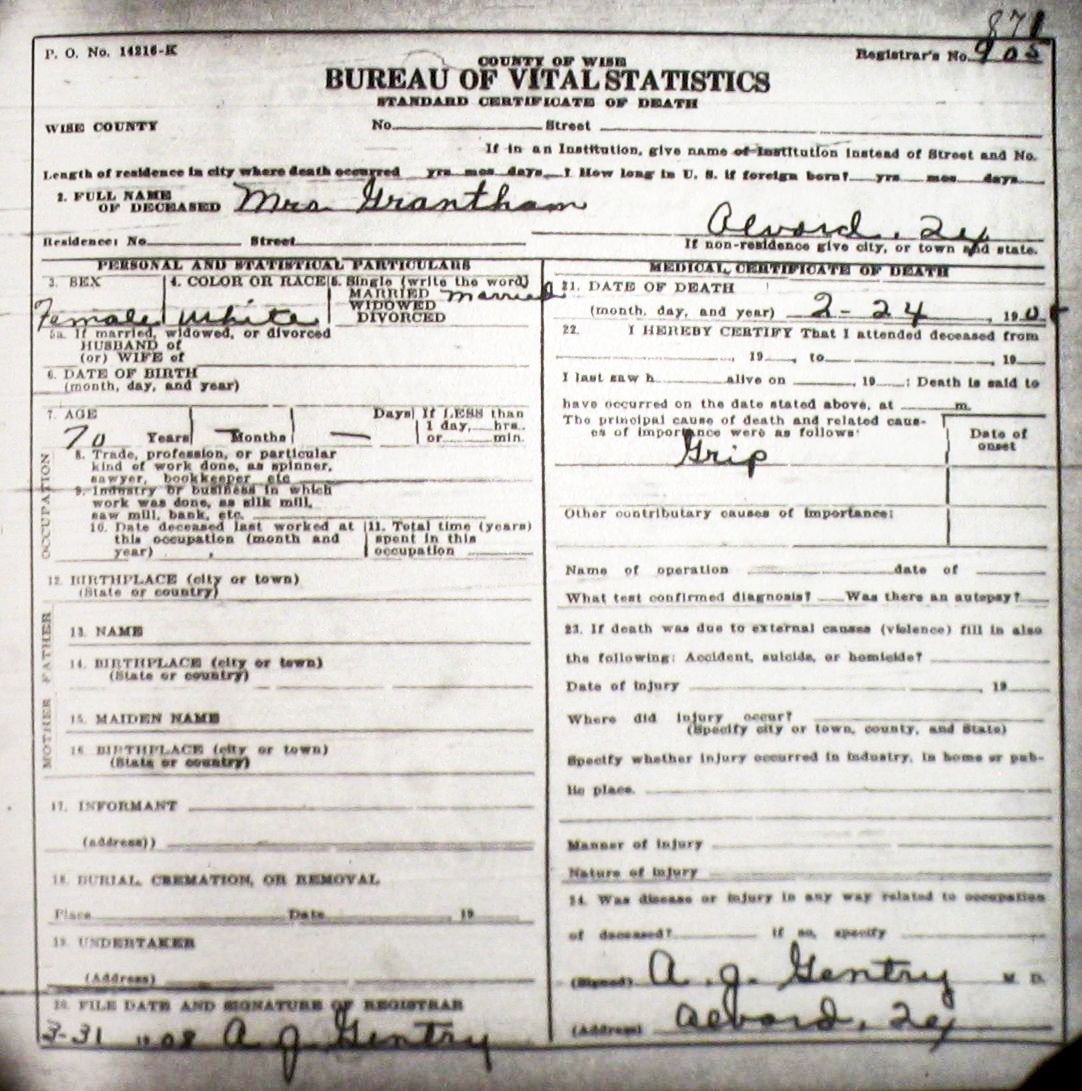 871
P. O. No. 14216-K
Registrar's No. 905
COUNTY OF WISE
BUREAU OF VITAL STATISTICS
STANDARD CERTIFICATE OF DEATH
WISE COUNTY No. Street
If in an Institution, give name of Institution instead of Street and No.
Length of residence in city where death occurred yrs mos days ? How long in U. S. if foreign born? yrs mos days
2. FULL NAME
OF DECEASED Mrs. Grantham
Alvord, Tex
Residence: No. Street
If non-residence give city, or town and state.
PERSONAL AND STATISTICAL PARTICULARS
3. SEX
Female
4. COLOR OR RACE
White
5. Single (write the word)
MARRIED Married
WIDOWED
DIVORCED
5a. If married, widowed, or divorced
HUSBAND of
(or) WIFE of
6. DATE OF BIRTH
(month, day, and year)
7. AGE
70 Years — Months —
Days
If LESS than
1 day, hrs.
or min.
OCCUPATION
8. Trade, profession, or particular
kind of work done, as spinner,
sawyer, bookkeeper, etc
9. Industry or business in which
work was done, as silk mill,
saw mill, bank, etc.
10. Date deceased last worked at
this occupation (month and
year)
11. Total time (years)
spent in this
occupation
12. BIRTHPLACE (city or town)
(State or country)
FATHER
13. NAME
14. BIRTHPLACE (city or town)
(State or country)
MOTHER
15. MAIDEN NAME
16. BIRTHPLACE (city or town)
(State or country)
17. INFORMANT
(address))
18. BURIAL, CREMATION, OR REMOVAL
Place Date 19
19. UNDERTAKER
(Address)
20. FILE DATE AND SIGNATURE OF REGISTRAR
3-31 1908 A J Gentry
MEDICAL CERTIFICATE OF DEATH
21. DATE OF DEATH
(month, day, and year) 2-24, 190
22. I HEREBY CERTIFY That I attended deceased from
, 19 , to , 19
I last saw h alive on , 19 : Death is said to
have occurred on the date stated above, at m.
The principal cause of death and related caus-
es of importance were as follows:
Grip
Date of
onset
Other contributary causes of importance:
Name of operation date of
What test confirmed diagnosis? Was there an autopsy?
23. If death was due to external causes (violence) fill in also
the following: Accident, suicide, or homicide?
Date of injury , 19
Where did injury occur?
(Specify city or town, county, and State)
Specify whether injury occurred in industry, in home or pub-
lic place.
Manner of injury
Nature of injury
24. Was disease or injury in any way related to occupation
of deceased? If so, specify
(Signed) A. J. Gentry M. D.
(Address) Alvord, Tex